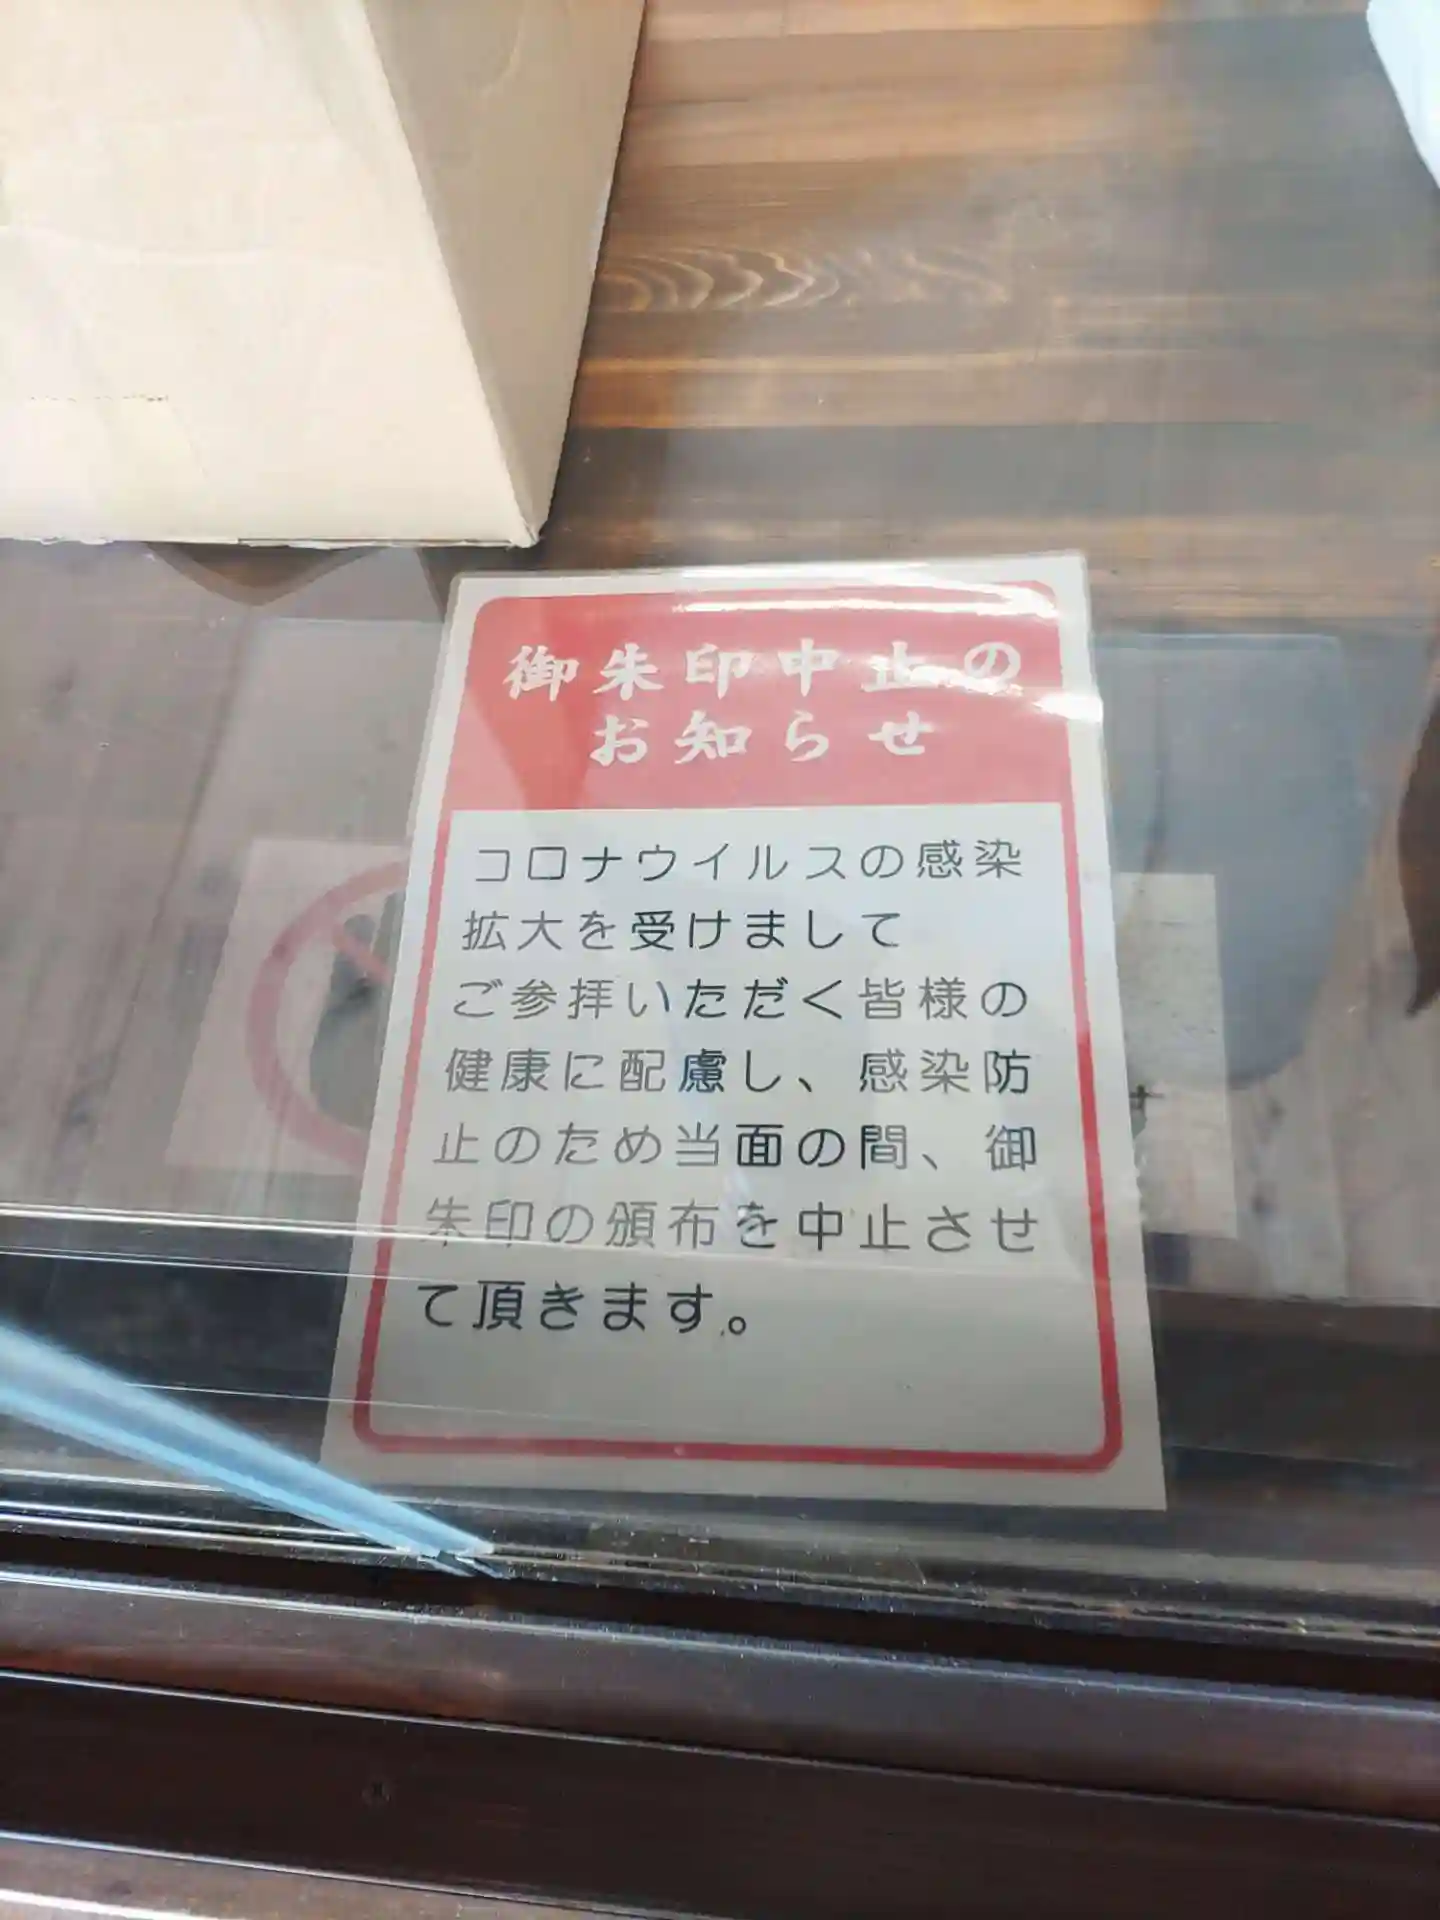 御朱印中止の
お知らせ
コロナウイルスの感染
拡大を受けまして
ご参拝いただく皆様の
健康に配慮し、感染防
止のため当面の間、御
朱印の頒布を中止させ
て頂きます。